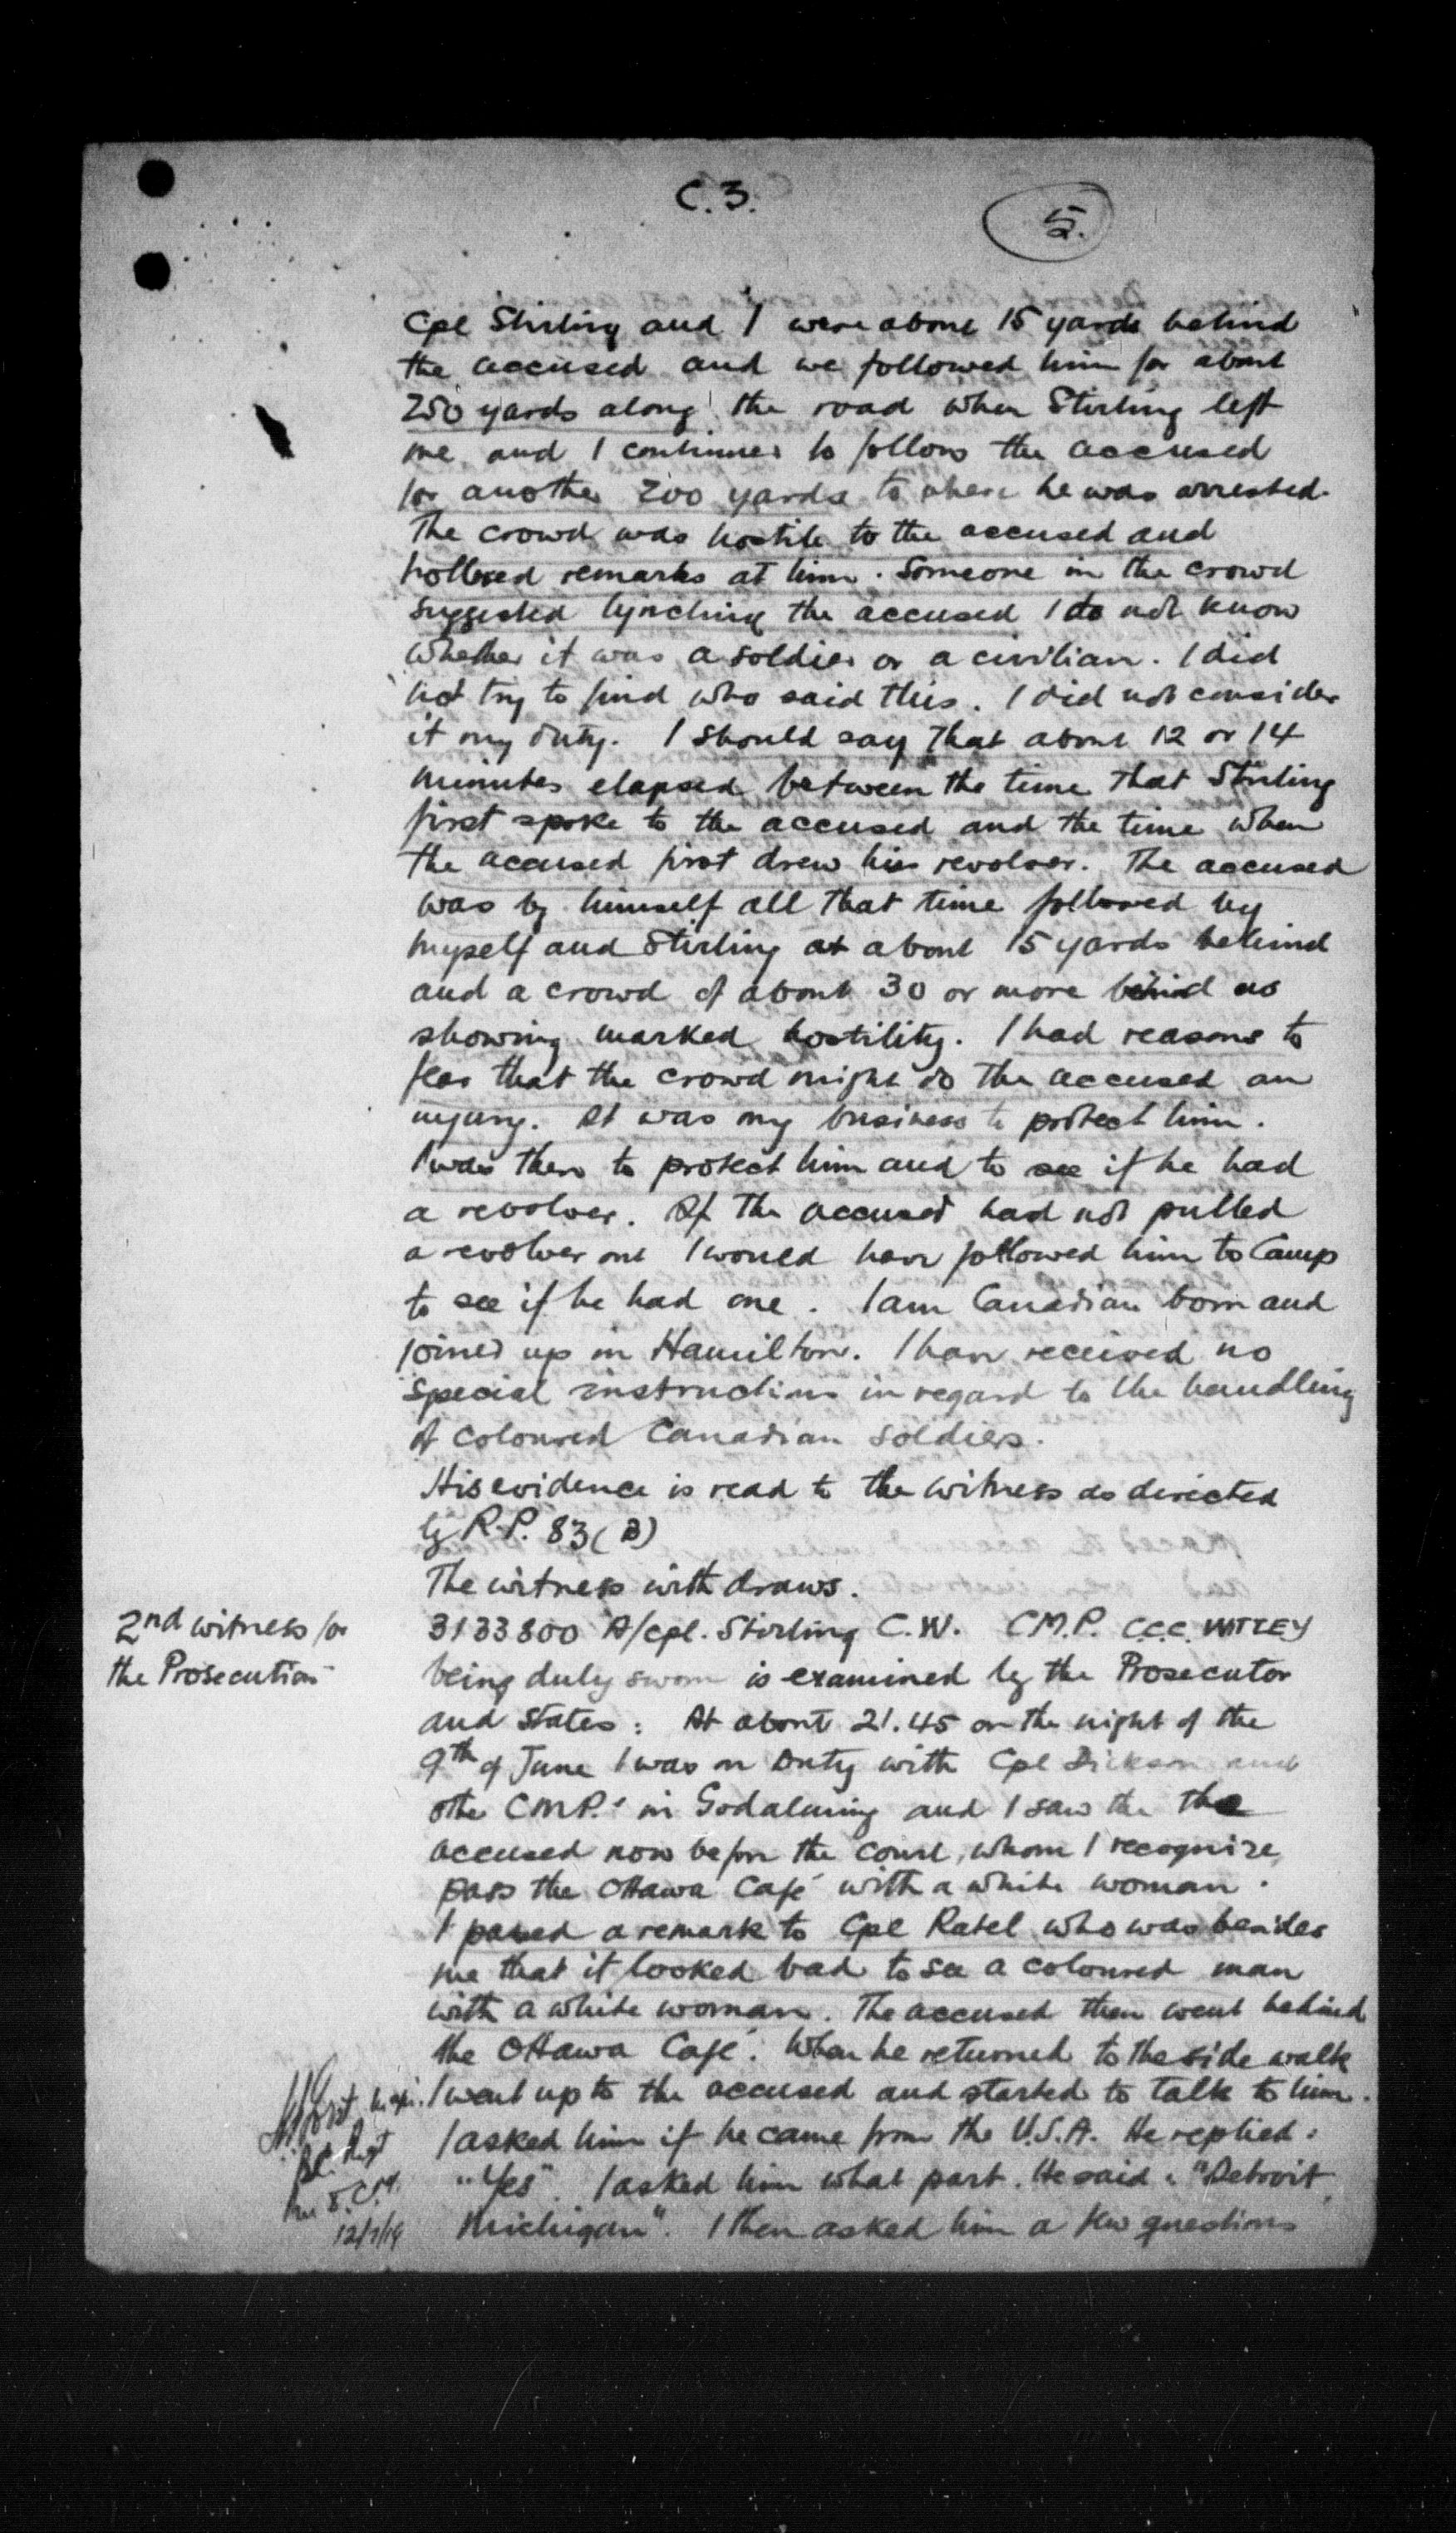 C.3.
5.
Cpl Stirling and I were about 15 yards behind
the accused and we followed him for about
250 yards along the road when Stirling left
me and I continued to follow the accused
for another 200 yards to where he was arrested.
The crowd was hostile to the accused and
hollered remarks at him. Someone in the crowd
suggested lynching the accused I do not know
whether it was a soldier or a civilian. I did
not try to find who said this. I did not consider
it my duty. I should say that about 12 or 14
minutes elapsed between the time that Stirling
first spoke to the accused and the time when
the accused first drew his revolver. The accused
was by himself all that time followed by
myself and Stirling at about 15 yards behind
and a crowd of about 30 or more behind us
showing marked hostility. I had reasons to
fear that the crowd might do the accused an
injury. It was my business to protect him.
I was there to protect him and to see if he had
a revolver. If the accused had not pulled
a revolver out I would have followed him to Camp
to see if he had one. I am Canadian born and
joined up in Hamilton. I have received no
special instructions in regard to the handling
of coloured Canadian soldiers.
His evidence is read to the witness as directed
by R.P. 83 (B)
The witness withdraws.
2nd witness for
the Prosecution
3133800 A/cpl. Stirling C.W. C.M.P. C.C.C. WITLEY
being duly sworn is examined by the Prosecutor
and states: At about 21.45 on the night of the
9th of June I was on Duty with Cpl Dickson and
other C.M.P.s in Godalming and I saw the the
accused now before the court, whom I recognize,
pass the Ottawa Café with a white woman.
I passed a remark to Cpl Ratel who was besides
me that it looked bad to see a coloured man
with a white woman. The accused then went behind
the Ottawa Café. When he returned to the side walk
I went up to the accused and started to talk to him.
I asked him if he came from the U.S.A. He replied:
"Yes". I asked him what part. He said: "Detroit,
Michigan". I then asked him a few questions
12/7/19